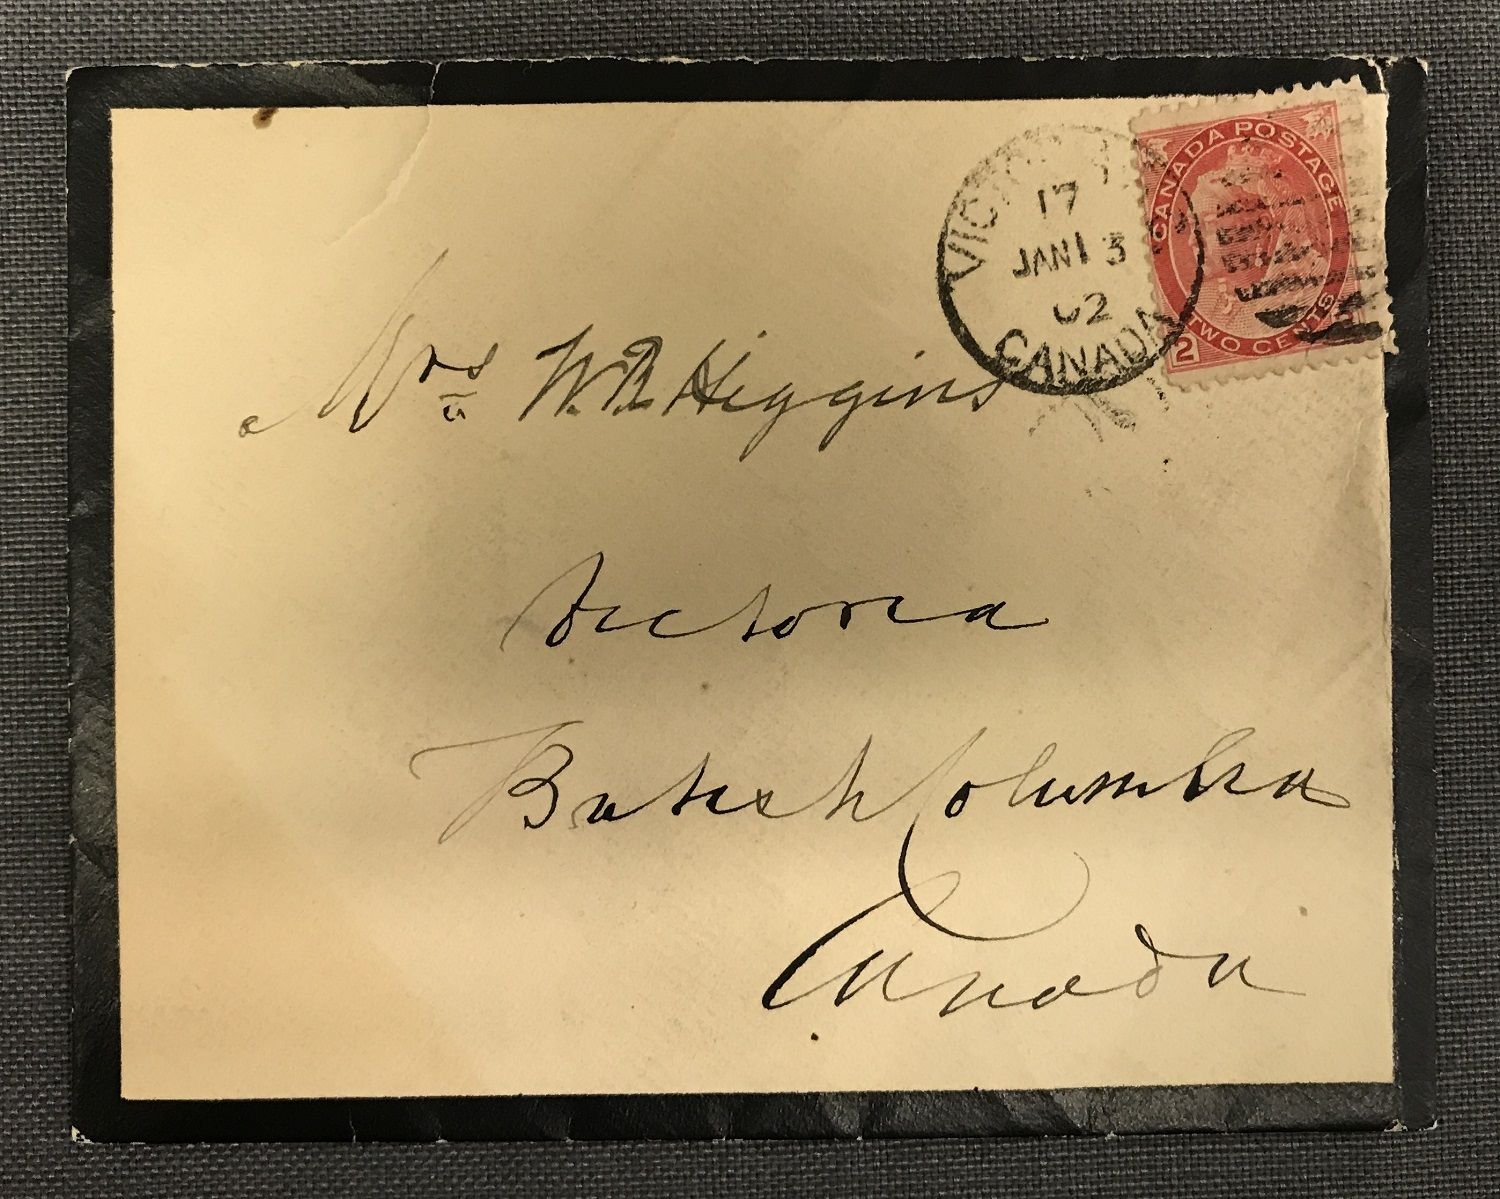 CANADA POSTAGE
TWO CENTS
2
VICTORIA
17
JAN 13
02
CANADA
Mrs W. R. Higgins
Victoria
British Columbia
Canada